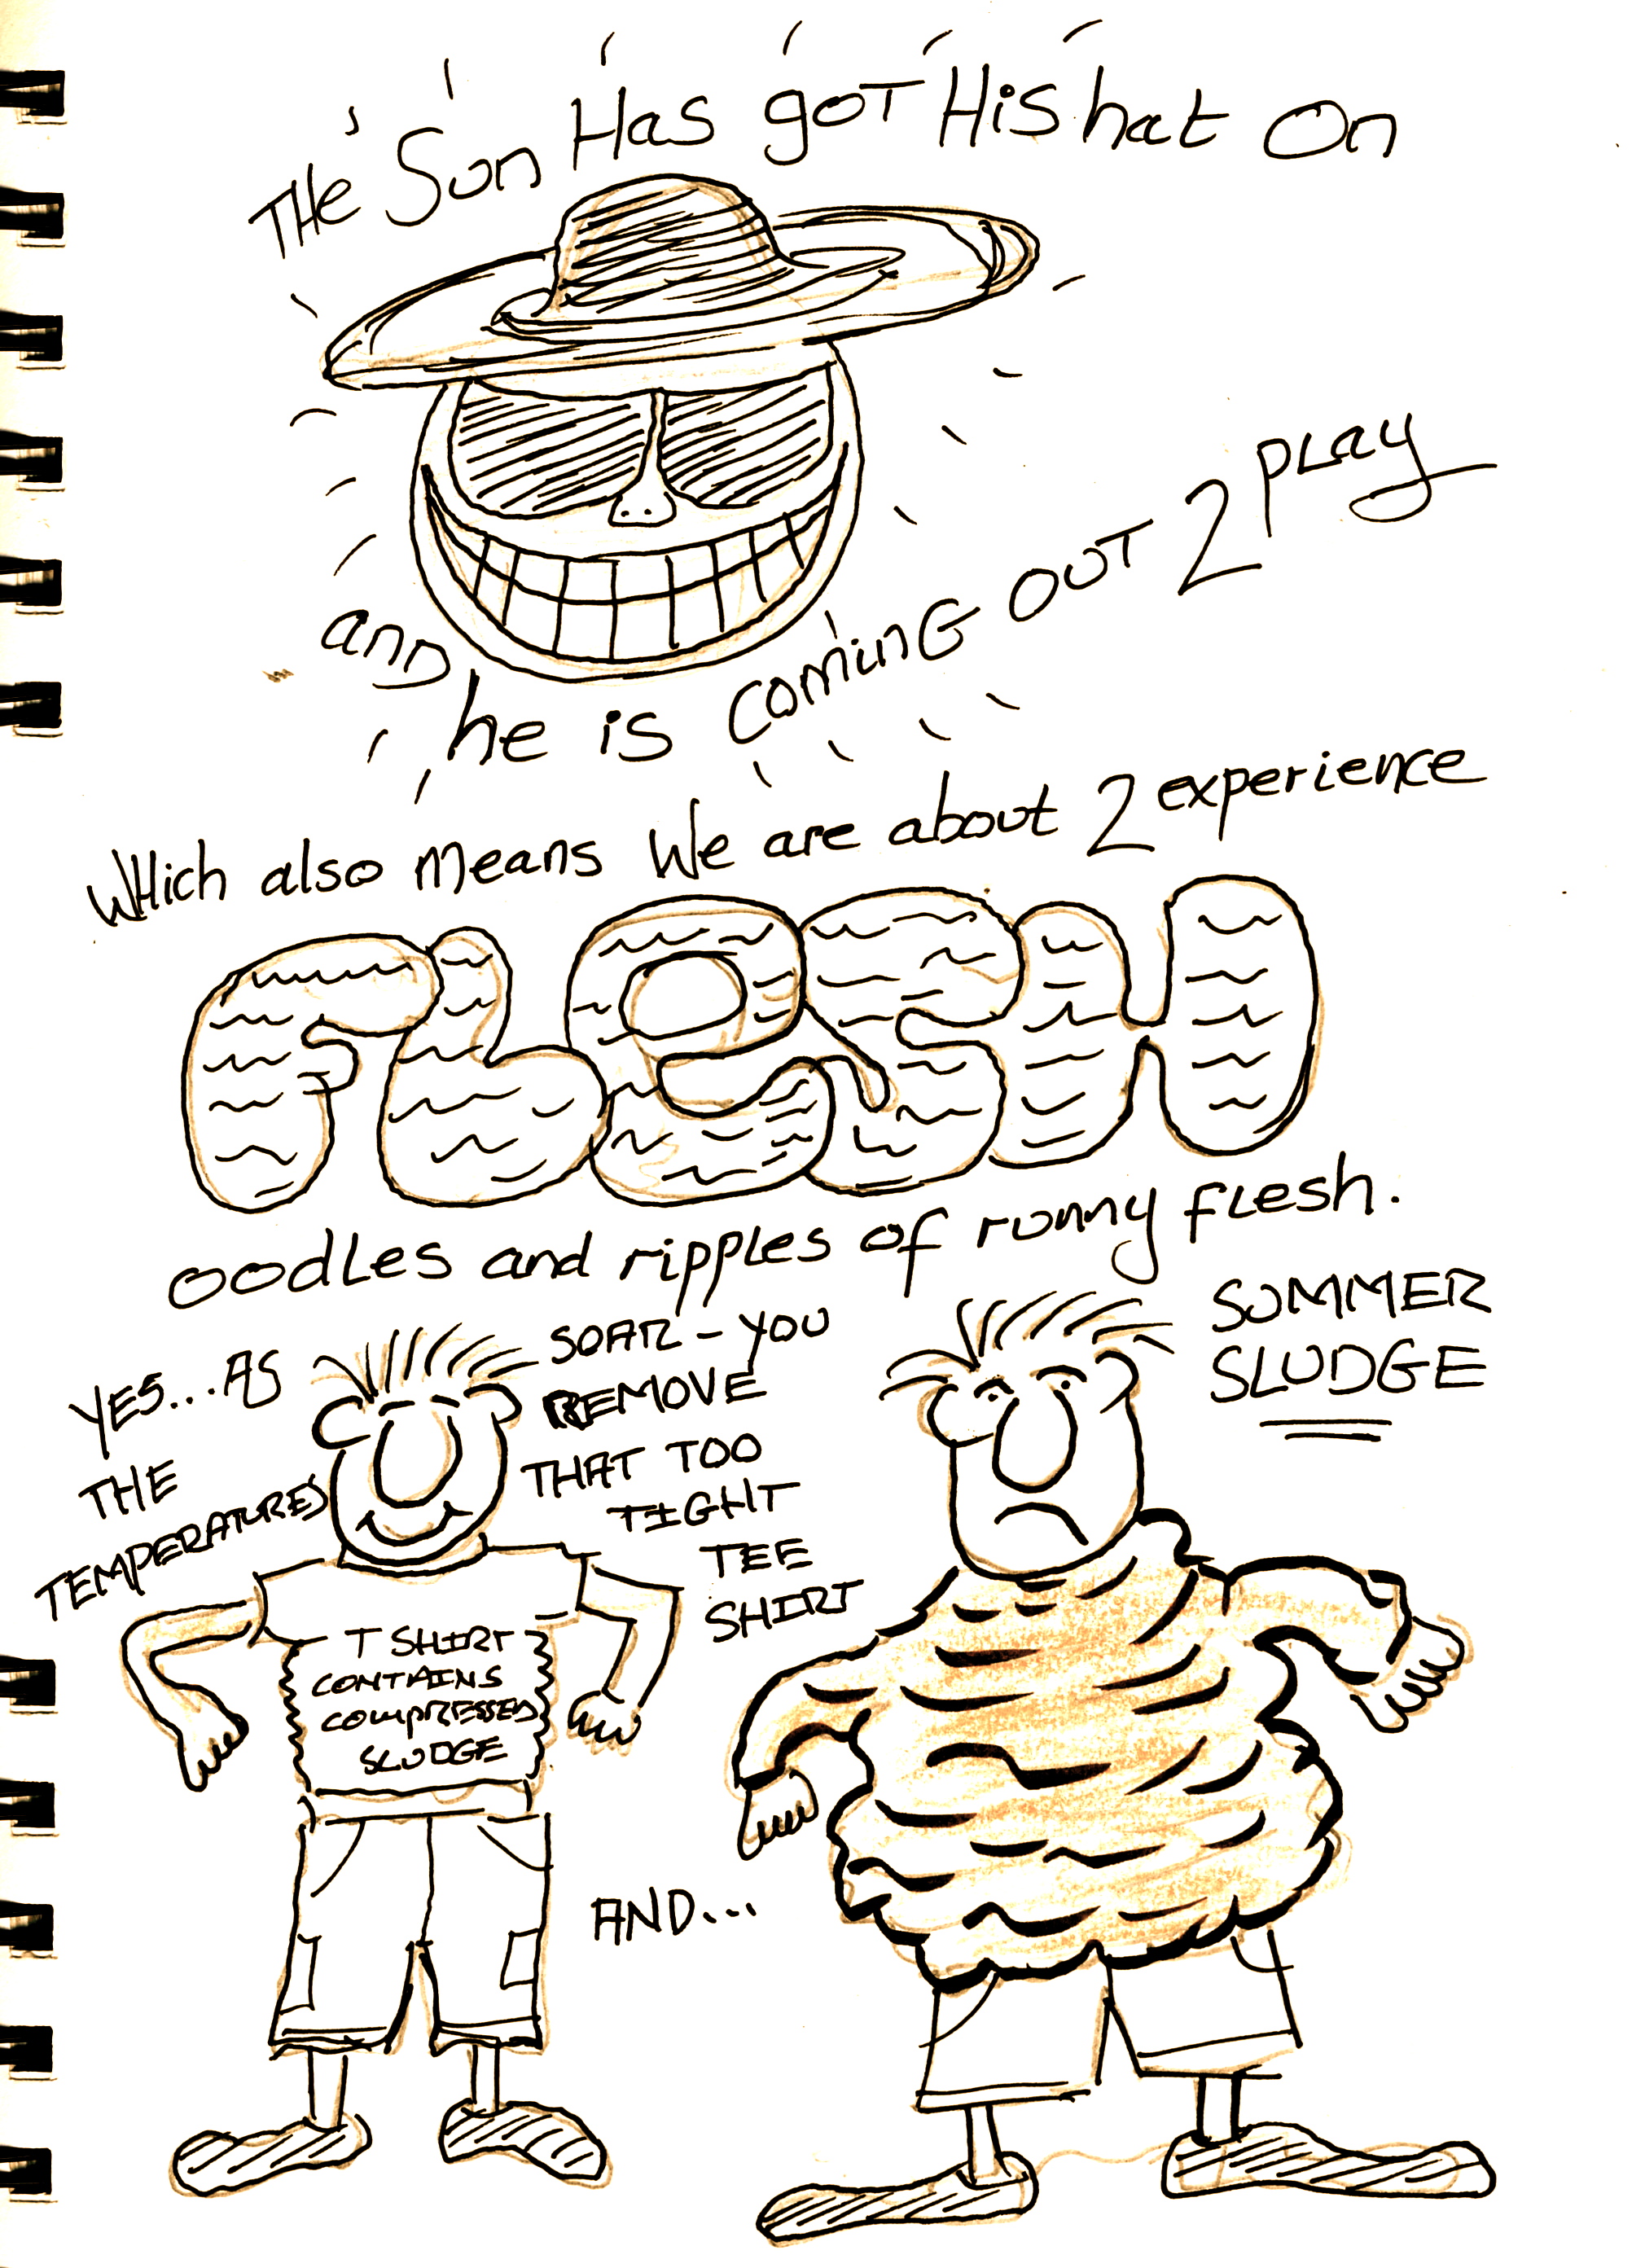 THe Sun Has goT His hat On
anD he is cominG OUT 2 pLay
WHich also means We are about 2 experience
FLeSH
oodLes and ripples of runny fLesh.
YES... AS
THE
TEMPERATURES
SOAR - YOU
REMOVE
THAT TOO
TIGHT
TEE
SHIRT
T SHIRT
CONTAINS
COMPRESSED
SLUDGE
AND...
SUMMER
SLUDGE